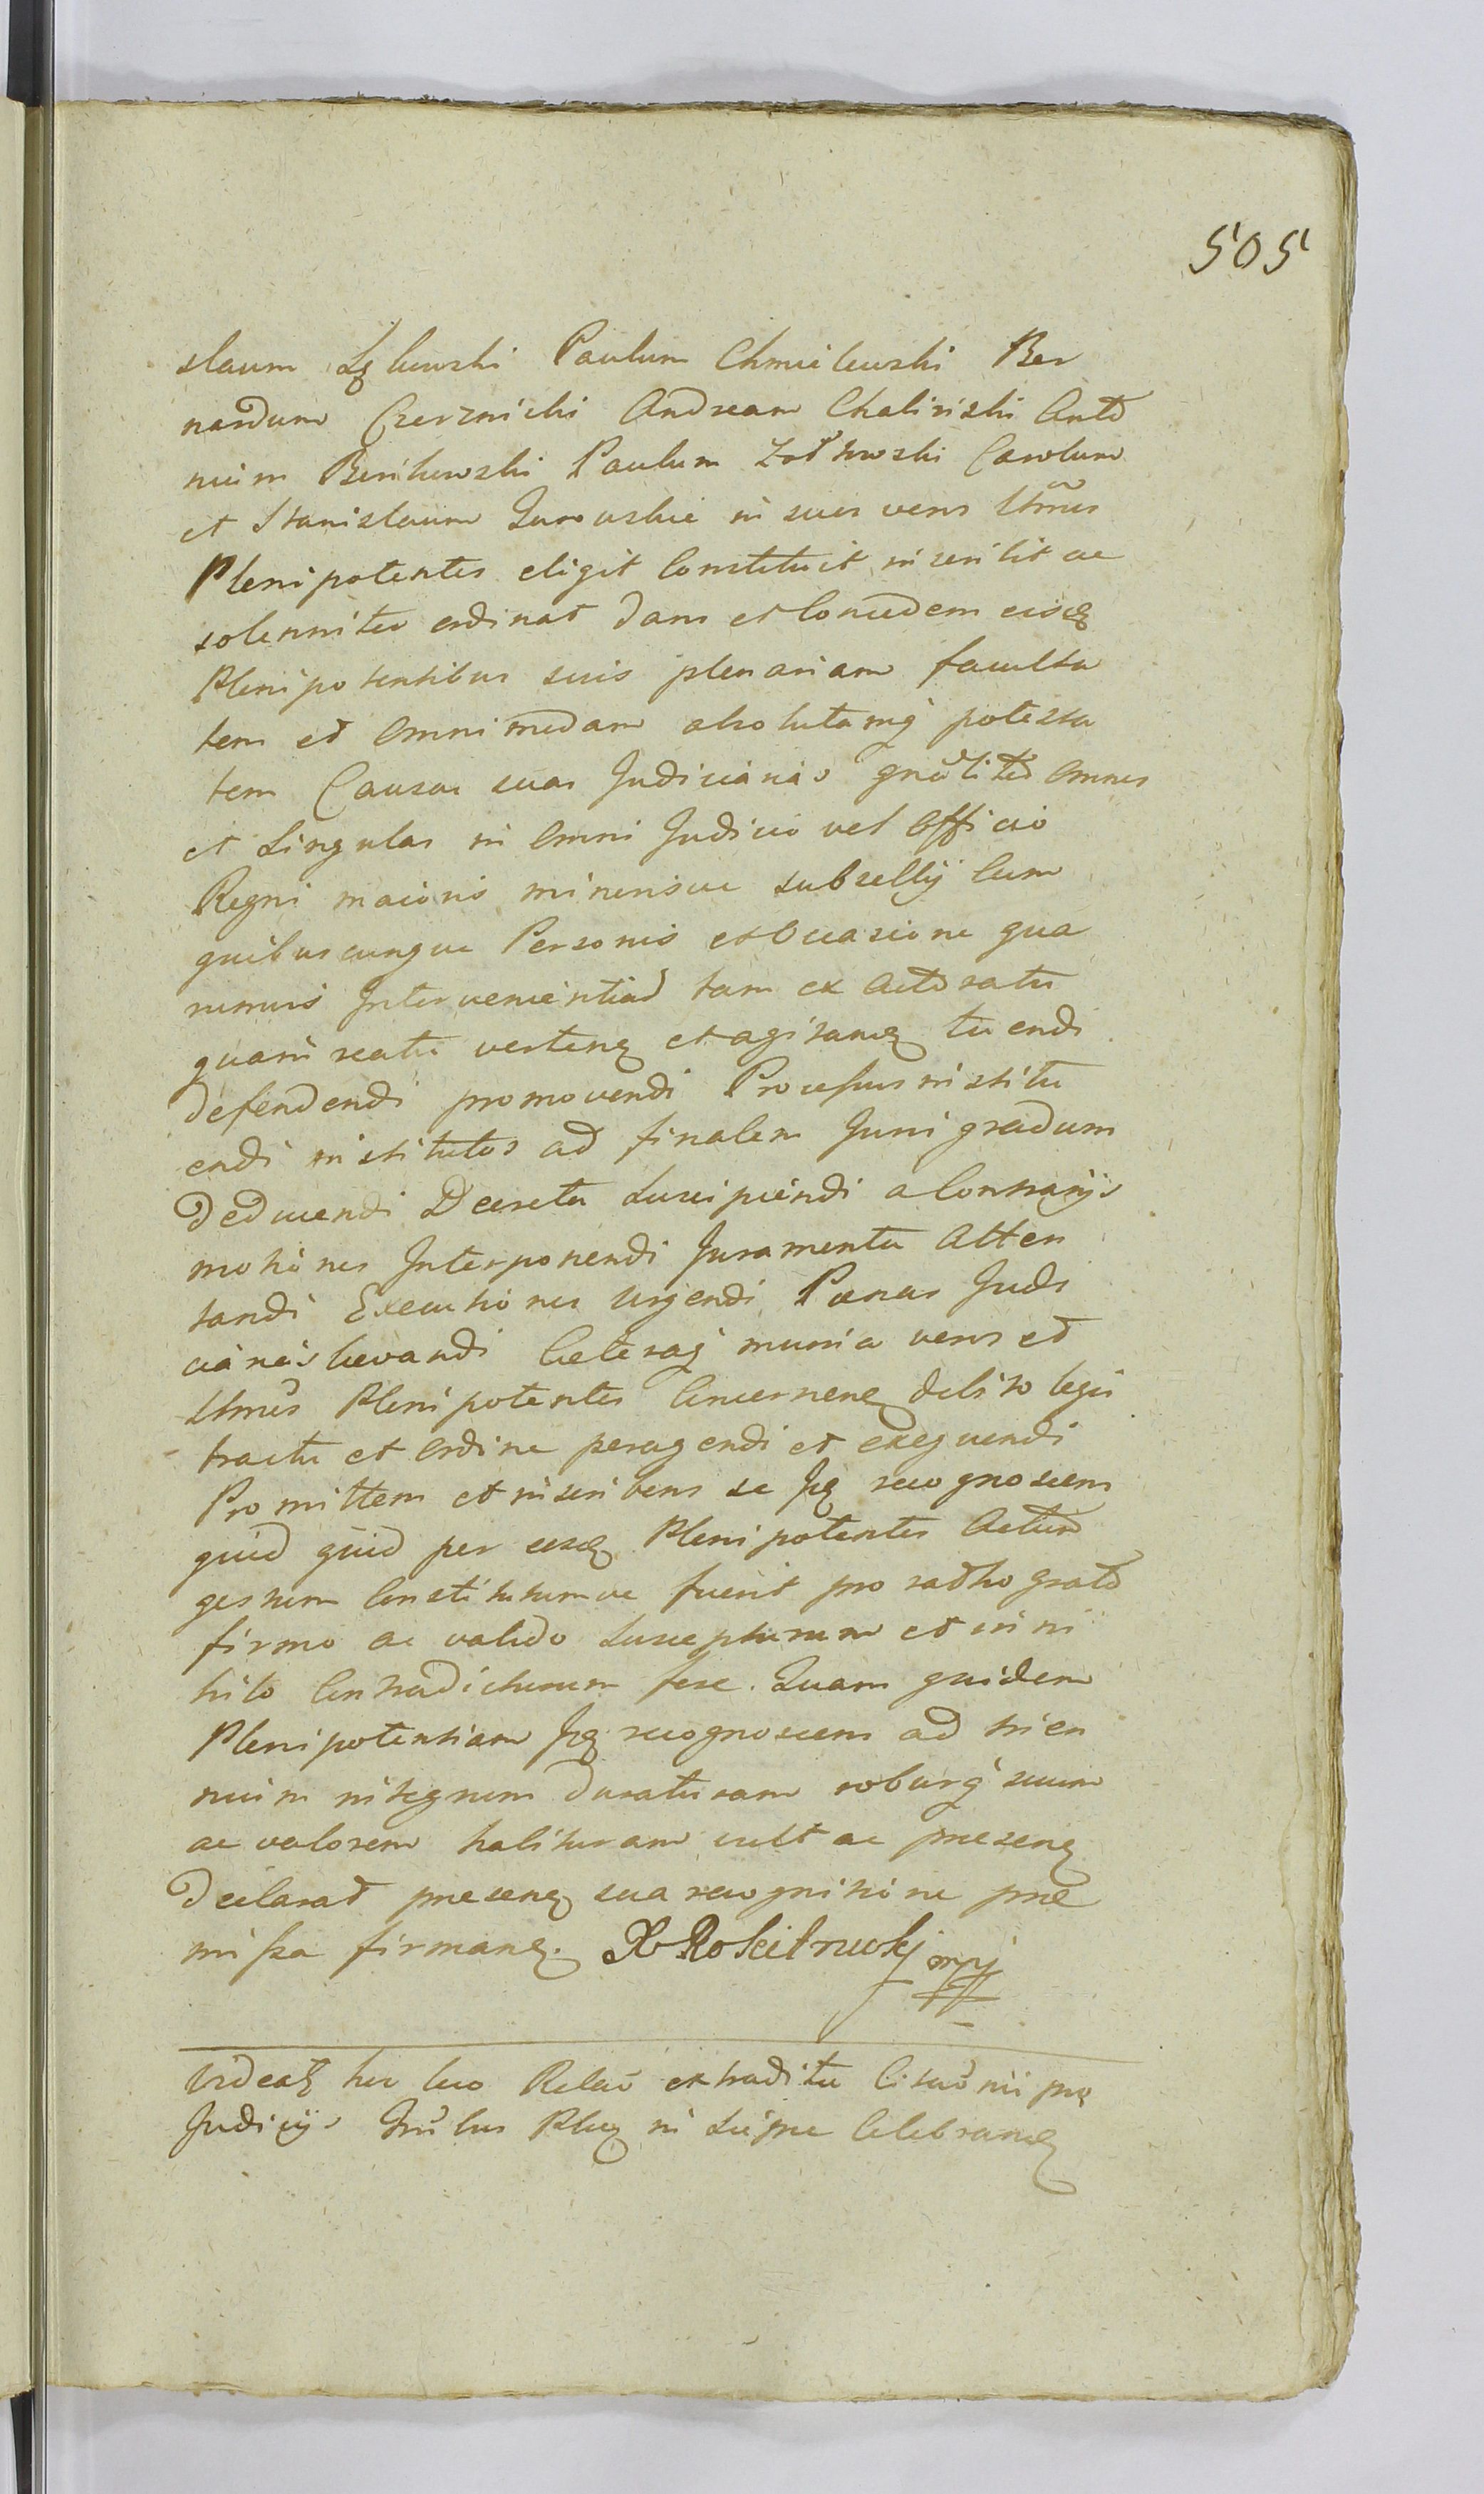 505
slaum Paulum Chmielewski Ber
nardum Czerznicki Andream Chalinski Anto
nium Paulum Carolum
et Stanislaum in suos veros lttmos
Plenipotentes eligit Constituit inscribit ac
solenniter ordinat Dans et Concedem eisq
Plenipotentibus suis plenariam faculta
tem et omnimodam absolutamq potesta
tem Causas suas Judiciarias gnãliter omnes
et Singulas in omni Judicio vel Officio
Regni maioris minorisve subsellij Cum
quibuscunque Personis et Occasione qua
rumvis Intervenientiar tam ex Actoratu
quam reatu verten et agitan tuendi
defendendi promovendi Processus institu
endi institutos ad finalem Juris gradum
Deducendi Decreta Suscipiendi a Contrarijs
motiones Interponendi Juramenta Atten
tandi Executiones urgendi Pœnas Judi
ciarias levandi Ceteraq munia veros et
lttmos Plenipotentes Concernen debito legis
tractu et ordine peragendi et exequendi
Promittem et inscribens se Iq recognoscens
quid quid per eosq Plenipotentes Actum
gestum Constitutumve fuerit pro ratho grato
firmo ac valido Suscepturum et in ni
hilo Contradicturum fore. Quam quidem
Plenipotentiam Iq recognoscens ad trien
nium integrum duraturam roburq suum
ac valorem habituram vult ac presen
declarat presen sua recognitione prœ
missa firman. mpp
Videat hic loco Relaõ extradita
Judicijs in Celebran